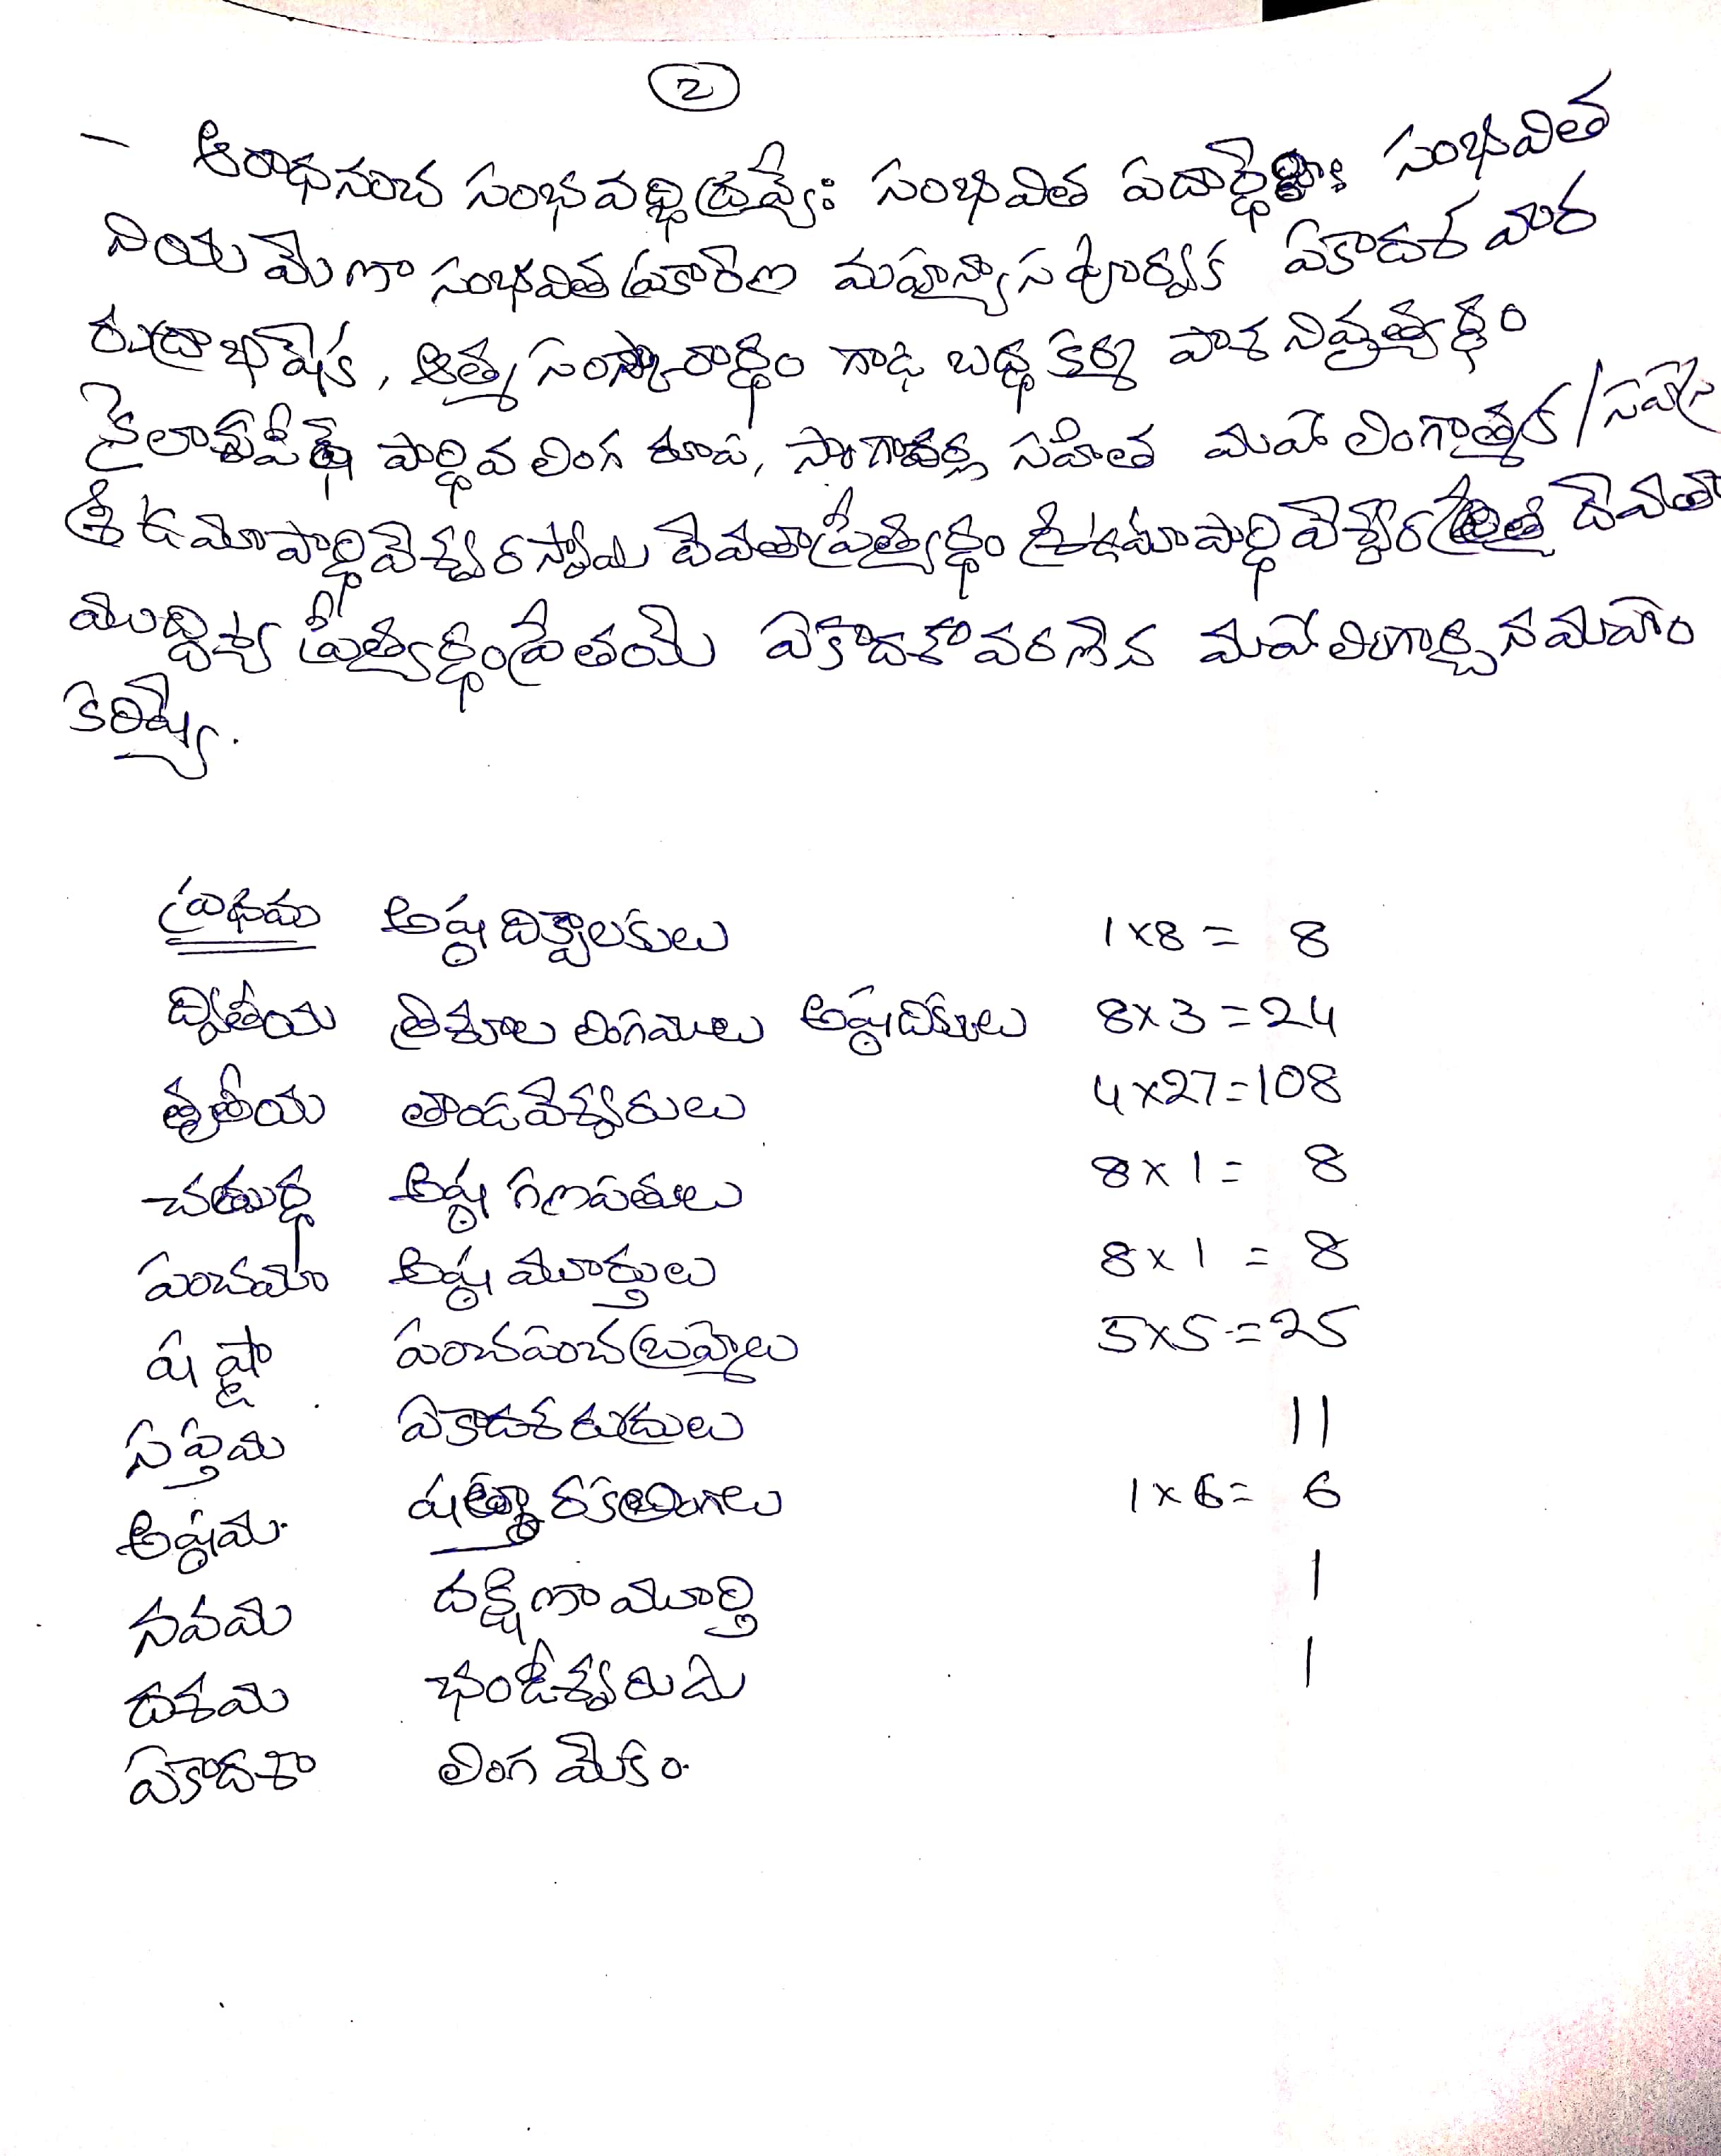 2
– ఆరాధనంచ సంభవద్భిద్రవ్యైః సంభవిత పదార్థైః సంభవిత
నియమేణా సంభవిత ప్రకారేణ మహాన్యాస పూర్వక ఏకాదశ వార
రుద్రాభిషేక, ఆత్మ సంస్కారార్థం గాఢ బద్ధ కర్మ పాశ నివృత్యర్థం
కైలాస పార్థివ లింగ రూప, సహిత మహా లింగాత్మక / సహస్ర
శ్రీ ఉమాపార్థివేశ్వర స్వామి దేవతాప్రీత్యర్థం శ్రీ ఉమాపార్థివేశ్వర దేవతా
ముద్దిశ్య ప్రీత్యర్థం ఏకాదశావరణేన మహాలింగార్చనమహం
కరిష్యే.
ప్రథమ అష్ట దిక్పాలకులు 1x8 = 8
ద్వితీయ త్రిశూల లింగములు అష్టదిక్కులు 8x3=24
తృతీయ తాండవేశ్వరులు 4x27=108
చతుర్థ అష్ట గణపతులు 8x1= 8
పంచమా అష్ట మూర్తులు 8x1 = 8
షష్టా పంచపంచబ్రహ్మలు 5x5=25
సప్తమ ఏకాదశ రుద్రులు 11
అష్టమ 1x6= 6
నవమ దక్షిణా మూర్తి 1
దశమ ఛండీశ్వరుడు 1
ఏకాదశా లింగ మేకం